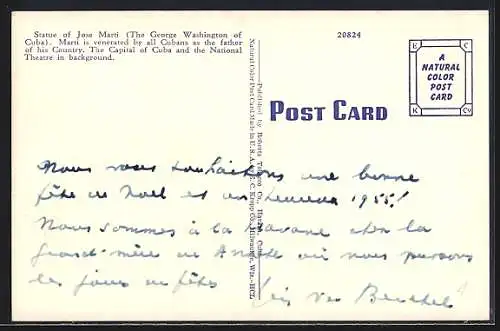 Statue of Jose Marti (The George Washington of
Cuba). Marti is venerated by all Cubans as the father
of his Country. The Capital of Cuba and the National
Theatre in background.
20824
E C
A
NATURAL
COLOR
POST
CARD
K Co
POST CARD
Published by Roberts Tobacco Co., Havana, Cuba
Natural Color Post Card Made in U. S. A. by E. C. Kropp Co., Milwaukee, Wis.
Nous vous souhaitons une bonne
fête de Noël et un heureux 1955!
Nous sommes à la Havane chez la
grand-mère de où nous passons
les jours de fêtes